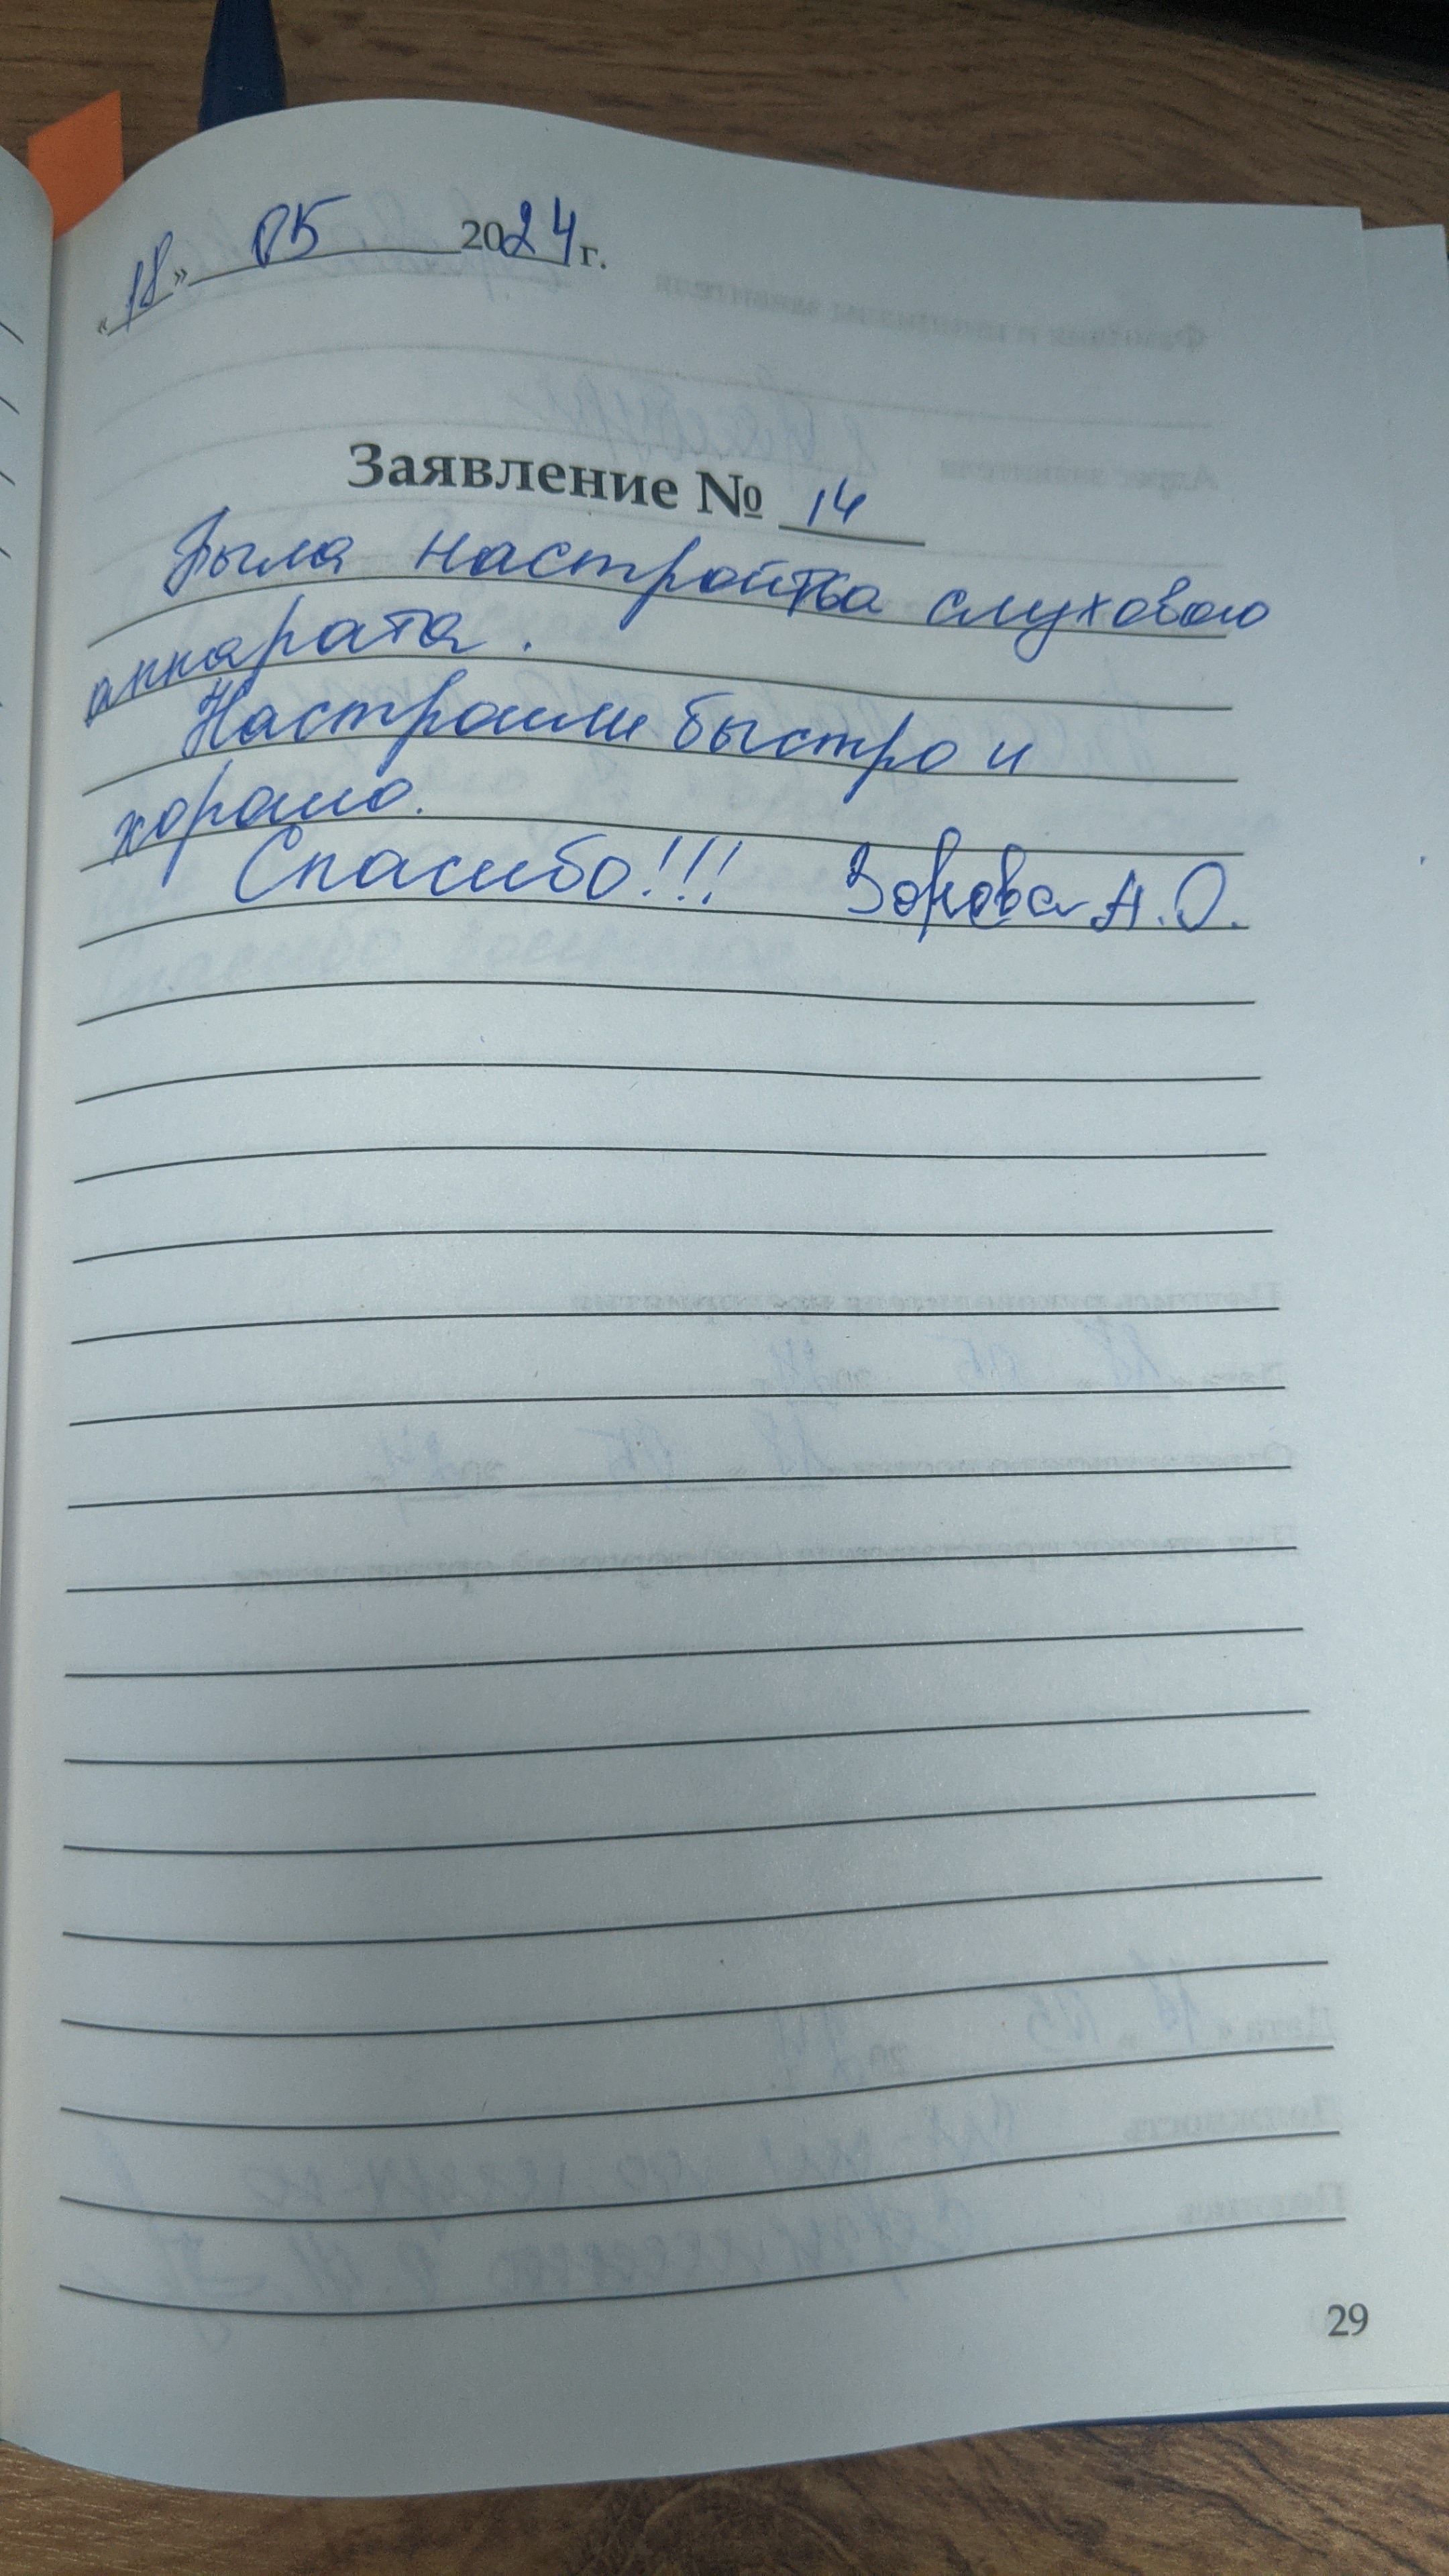 «18» 05 2024 г.
Заявление № 14
Была настройка слухового
аппарата.
Настроили быстро и
хорошо.
Спасибо!!! Зорова А.О.
29